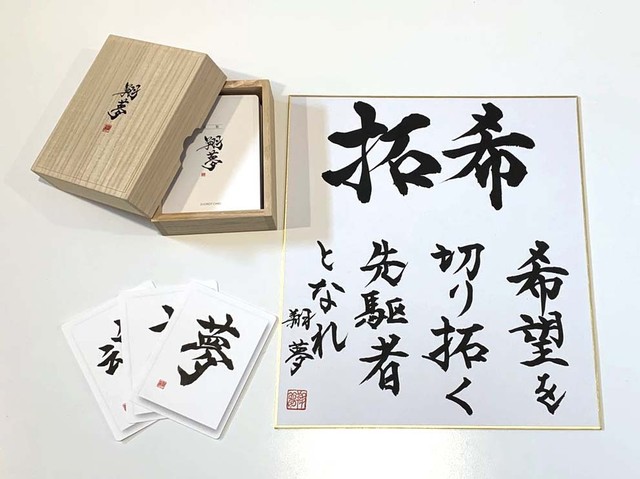 翔夢
翔夢
希拓
希望を
切り拓く
先駆者
となれ
翔夢
夢